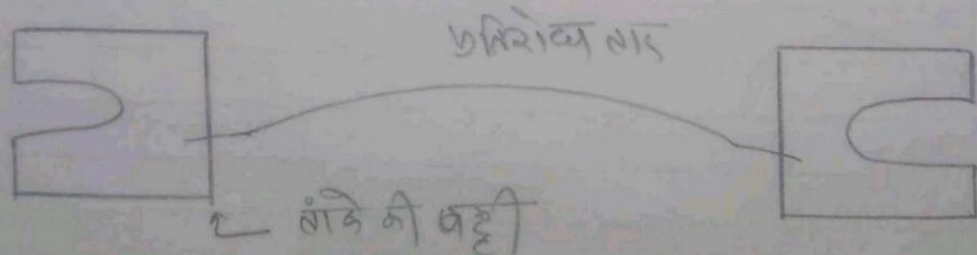 प्रतिरोध तार
तांबे की पट्टी